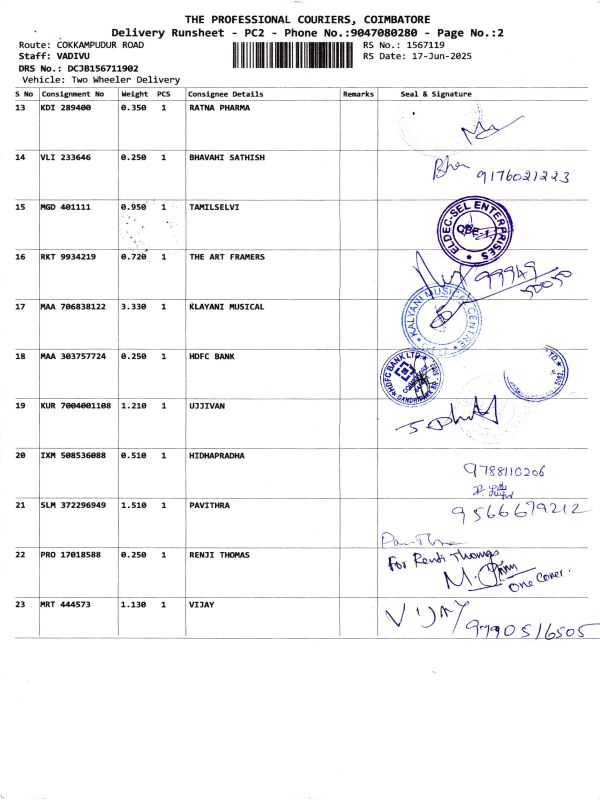 THE PROFESSIONAL COURIERS, COIMBATORE
Delivery Runsheet - PC2 - Phone No.:9047080280 - Page No.:2
Route: COKKAMPUDUR ROAD RS No.: 1567119
Staff: VADIVU RS Date: 17-Jun-2025
DRS No.: DCJB156711902
Vehicle: Two Wheeler Delivery
S No Consignment No Weight PCS Consignee Details Remarks Seal & Signature
13 KDI 289400 0.350 1 RATNA PHARMA
14 VLI 233646 0.250 1 BHAVAHI SATHISH
9176021223
15 MGD 401111 0.950 1 TAMILSELVI
ELDEC-SEL ENTERPRISES
CBE-1
16 RKT 9934219 0.720 1 THE ART FRAMERS
99949
50050
17 MAA 706838122 3.330 1 KLAYANI MUSICAL
KALYANI MUSICAL CENTRE
18 MAA 303757724 0.250 1 HDFC BANK
HDFC BANK LTD.
19 KUR 7004001108 1.210 1 UJJIVAN
20 IXM 508536088 0.510 1 HIDHAPRADHA
9788110206
21 SLM 372296949 1.510 1 PAVITHRA
9566679212
22 PRO 17018588 0.250 1 RENJI THOMAS
For Renji Thomas
One Cover.
23 MRT 444573 1.130 1 VIJAY
VIJAY
9790516505